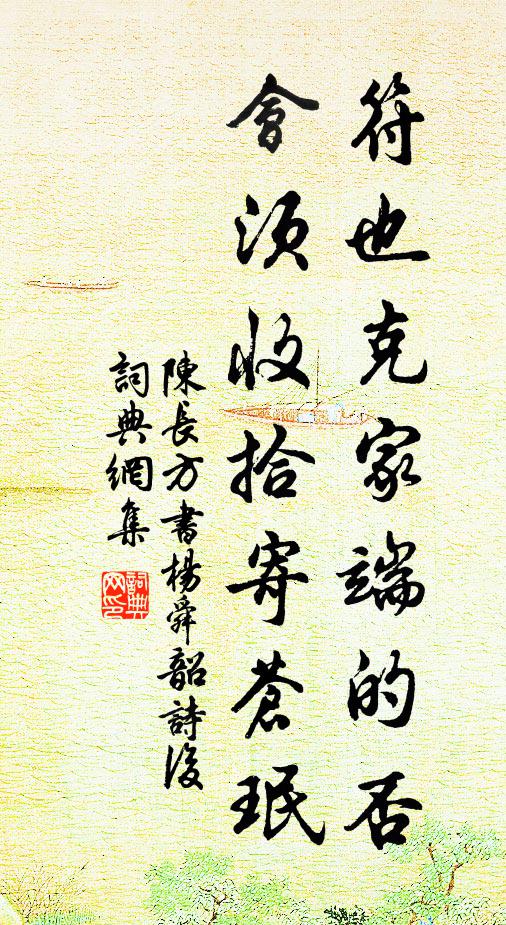 符也克家端的否
會須收拾寄蒼珉
陳長方書楊舜韶詩後
詞典網集
詞典网印